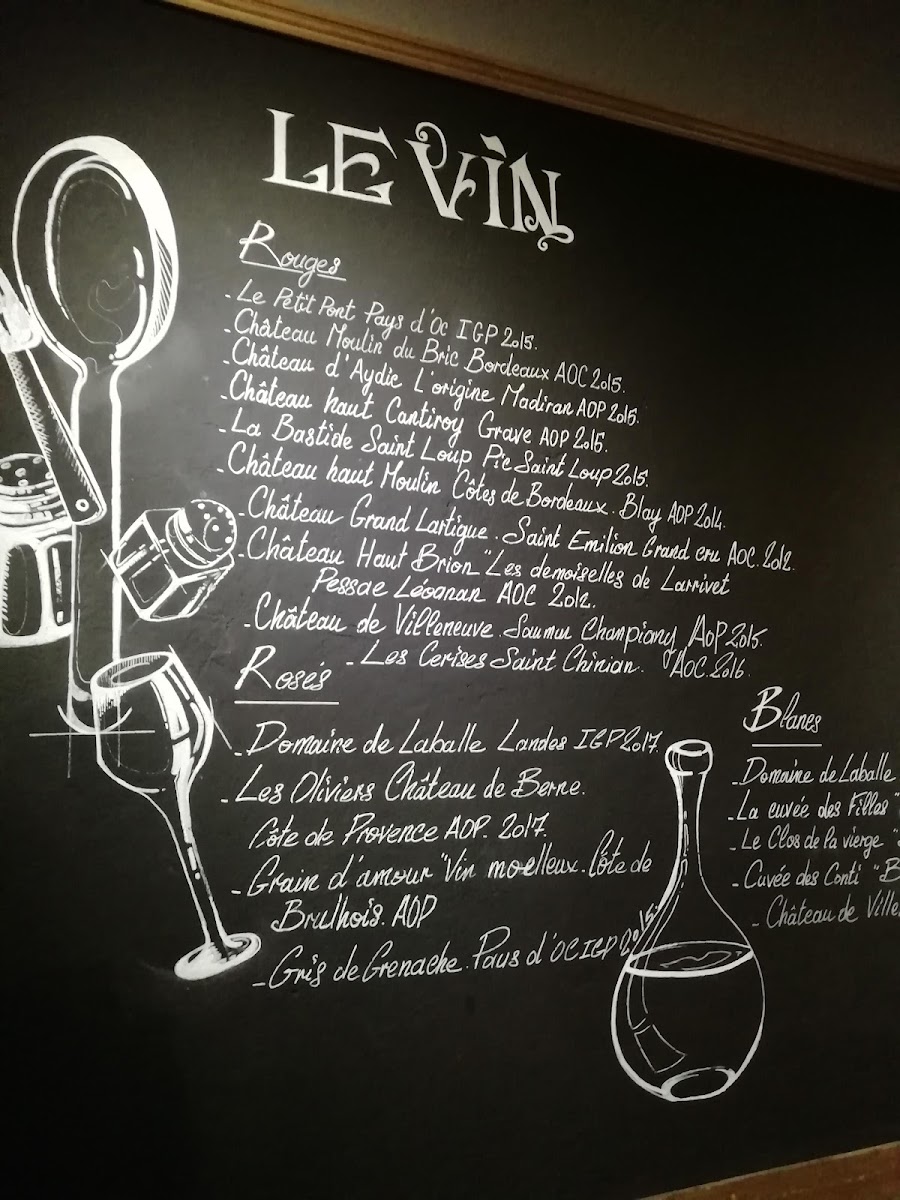 LE VIN
Rouges
- Le Petit Pont Pays d'Oc IGP 2015.
- Château Moulin du Bric Bordeaux AOC 2015.
- Château d'Aydie L'origine Madiran AOP 2015.
- Château haut Cantiroy Grave AOP 2015.
- La Bastide Saint Loup Pic Saint Loup 2015.
- Château haut Moulin Côtes de Bordeaux. Blay AOP 2014.
- Château Grand Lartigue. Saint Emilion Grand cru AOC. 2012.
- Château Haut Brion "Les demoiselles de Larrivet
Pessac Léognan AOC 2012.
- Château de Villeneuve. Saumur Champigny AOP 2015.
- Les Cerises Saint Chinian. AOC. 2016
Rosés
- Domaine de Laballe Landes IGP 2017.
- Les Oliviers Château de Berne.
Côte de Provence AOP. 2017.
- Grain d'amour "Vin moelleux. Côte de
Brulhois. AOP
- Gris de Grenache. Pays d'OC IGP 2015.
Blancs
- Domaine de Laballe
- La cuvée des Filles "
- Le Clos de la vierge "
- Cuvée des Conti "B
- Château de Ville